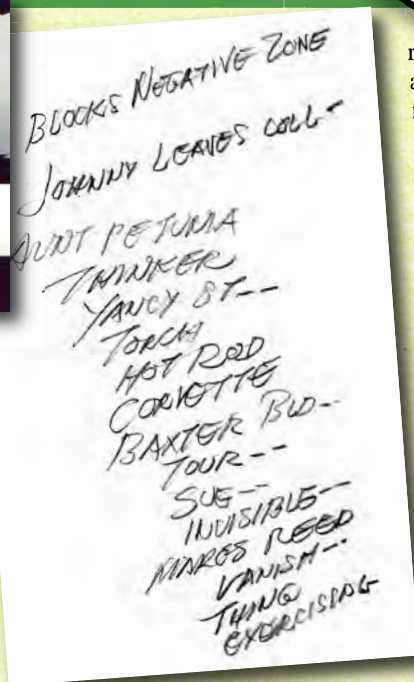 BLOCKS NEGATIVE ZONE
JOHNNY LEAVES COLL-
AUNT PETUNIA
THINKER
YANCY ST--
TORCH
HOT ROD
CORVETTE
BAXTER BLD--
TOUR--
SUE--
INVISIBLE--
MAKES REED
VANISH--
THING
EXERCISING